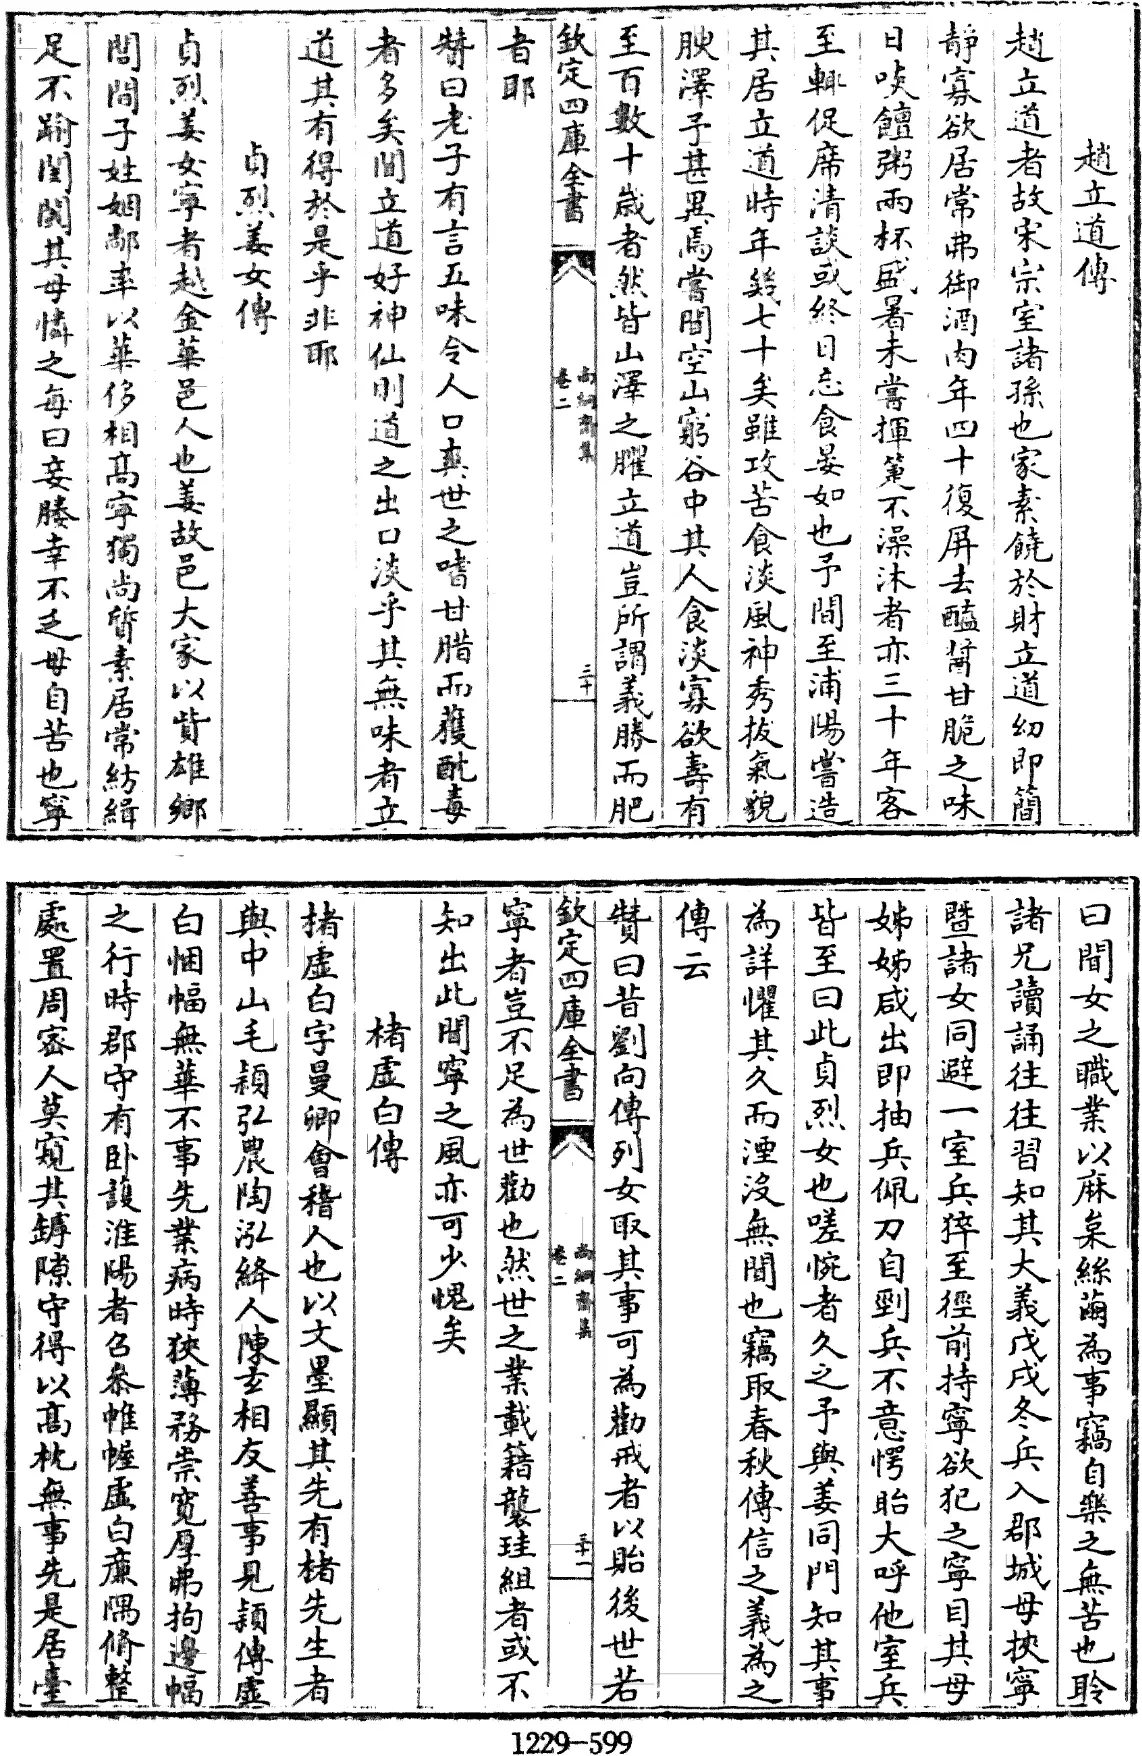 趙立道傳
趙立道者故宋宗室諸孫也家素饒於財立道幼即簡
靜寡欲居常弗御酒肉年四十復屏去醯醬甘脆之味
日啖饘粥兩杯盛暑未嘗揮箑不澡沐者亦三十年客
至輒促席清談或終日忘食晏如也予間至浦陽嘗造
其居立道時年幾七十矣雖攻苦食淡風神秀拔氣貌
腴澤予甚異焉嘗聞空山窮谷中其人食淡寡欲壽有
至百數十歲者然皆山澤之臞立道豈所謂義勝而肥
欽定四庫全書
尚絅齋集
卷二
三十
者耶
贊曰老子有言五味令人口爽世之嗜甘腊而蒦酖毒
者多矣聞立道好神仙則道之出口淡乎其無味者立
道其有得於是乎非耶
貞烈姜女傳
貞烈姜女寧者越金華邑人也姜故邑大家以貲雄鄉
閭間子姓姻鄰率以華侈相高寧獨尚質素居常紡緝
足不踰閨閫其母憐之每曰妾媵幸不乏毋自苦也寧
曰聞女之職業以麻枲絲繭為事竊自樂之無苦也聆
諸兄讀誦往往習知其大義戊戌冬兵入郡城母挾寧
暨諸女同避一室兵猝至徑前持寧欲犯之寧目其母
姊娣咸出即抽兵佩刀自剄兵不意愕眙大呼他室兵
皆至曰此貞烈女也嗟惋者久之予與姜同門知其事
為詳懼其久而湮沒無聞也竊取春秋傳信之義為之
傳云
贊曰昔劉向傳列女取其事可為勸戒者以貽後世若
欽定四庫全書
尚絅齋集
卷二
三十一
寧者豈不足為世勸也然世之業載籍襲珪組者或不
知出此聞寧之風亦可少愧矣
楮虛白傳
楮虛白字曼卿會稽人也以文墨顯其先有楮先生者
與中山毛穎弘農陶泓絳人陳玄相友善事見穎傳虛
白悃愊無華不事先業病時狹薄務崇寬厚弗拘邊幅
之行時郡守有卧護淮陽者召參帷幄虛白廉隅脩整
處置周密人莫窺其罅隙守得以高枕無事先是居臺
1229-599